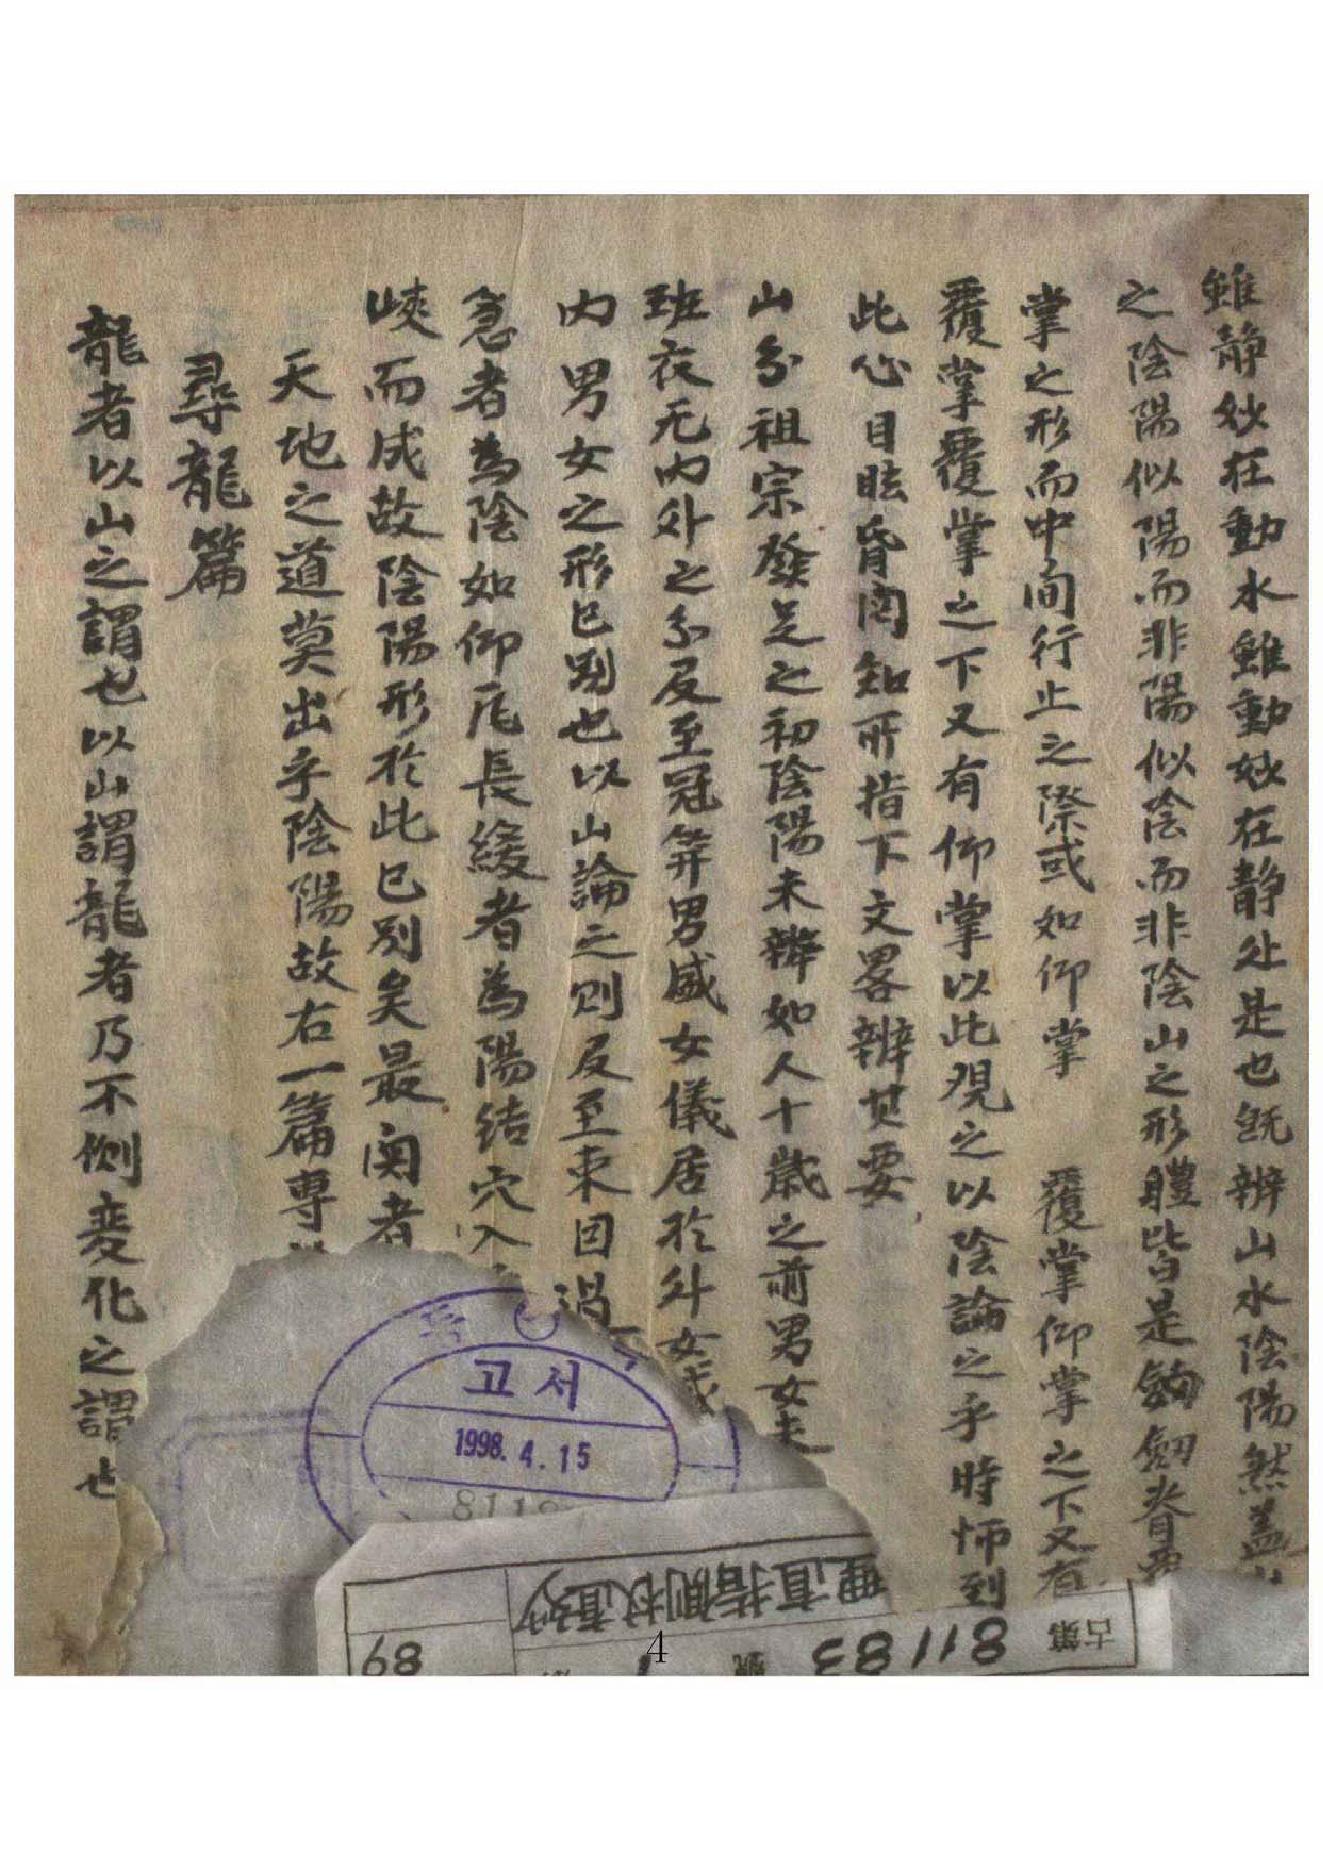 雖静妙在動水雖動妙在静处是也旣辨山水陰陽然盖山
之陰陽似陽而非陽似陰而非陰山之形體皆是劍脊
掌之形而中間行止之際或如仰掌 覆掌仰掌之下又有
覆掌覆掌之下又有仰掌以此覌之以陰論之乎時师到
此心目眩昏罔知所指下文畧辨其要
山分祖宗發足之初陰陽未辨如人十歲之前男女走
班衣无内外之分反至冠笄男威女儀居於外女
内男女之形已别也以山論之则反至束因過
急者為陰如仰瓦長緩者為陽结穴入
峽而成故陰陽形於此已别矣最闵者
天地之道莫出乎陰陽故右一篇専
尋龍篇
龍者以山之謂也以山謂龍者乃不侧变化之謂也
고서
1998. 4. 15
8118
理直指側杖直妙
古第 81183 號
68
4